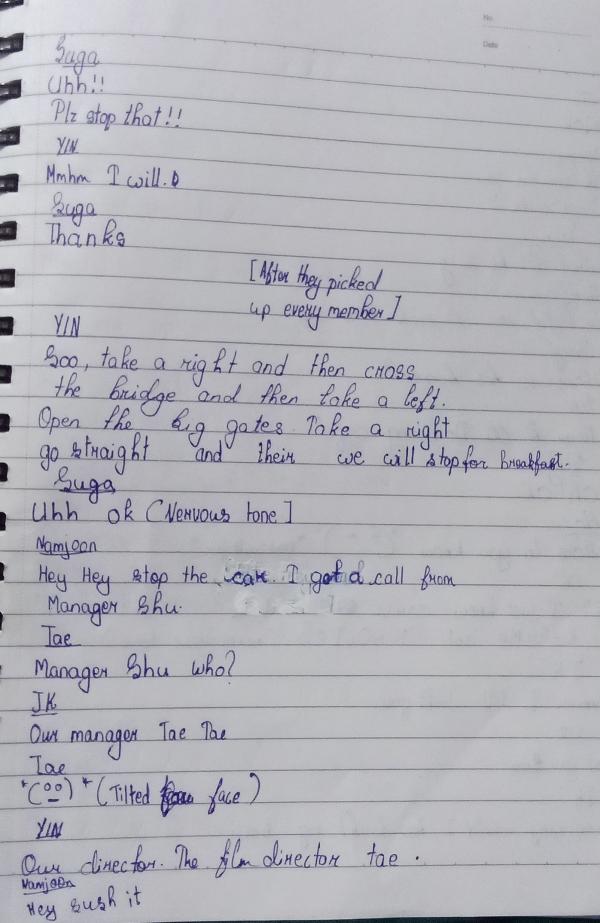 No.
Date
Suga
Uhh!!
Plz stop that!!
YIN
Mmhm I will.
Suga
Thanks
[After they picked
up every member]
YIN
Soo, take a right and then cross
the bridge and then take a left.
Open the big gates. Take a right
go straight and their we will stop for breakfast.
Suga
Uhh ok (Nervous tone]
Namjoon
Hey Hey stop the car. I got a call from
Manager Shu.
Tae
Manager Shu who?
JK
Our manager Tae Tae
Tae
*(oo)* (Tilted face)
YIN
Our director. The film director tae.
Namjoon
Hey sush it